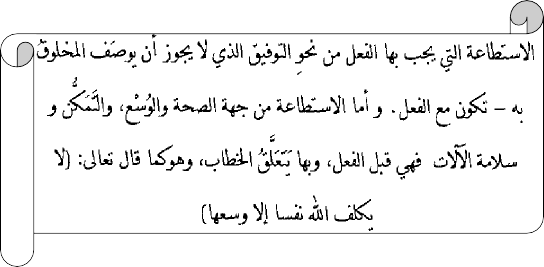 الاستطاعة التي يجب بها الفعل من نحوِ التوفيق الذي لا يجوز أن يوصَف المخلوقُ
به – تكون مع الفعل. و أما الاستطاعة من جهة الصحة والوُسْع، والتَّمَكُّن و
سلامة الآلات فهي قبل الفعل، وبها يَتَعَلَّقُ الخطاب، وهوكما قال تعالى: (لا
يكلف الله نفسا إلا وسعها)